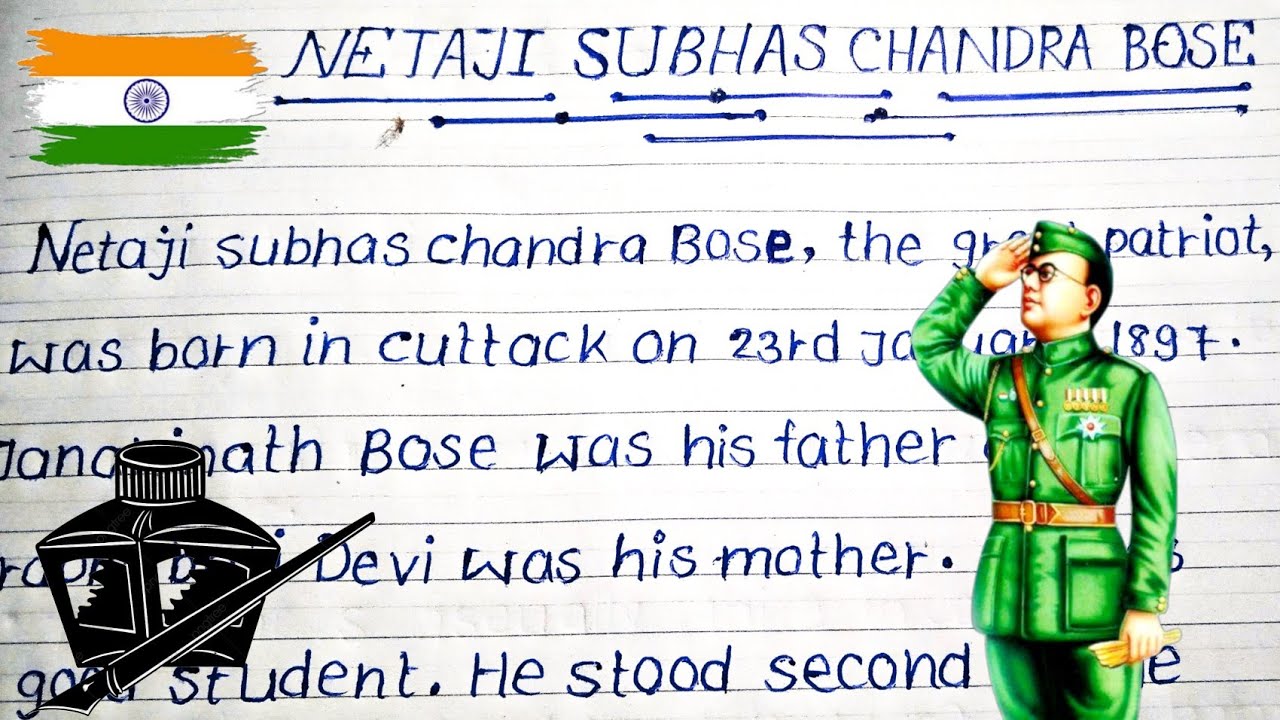 NETAJI SUBHAS CHANDRA BOSE
Netaji subhas chandra Bose, the patriot,
was born in cuttack on 23rd 1897.
Bose was his father
Devi was his mother.
student. He stood second